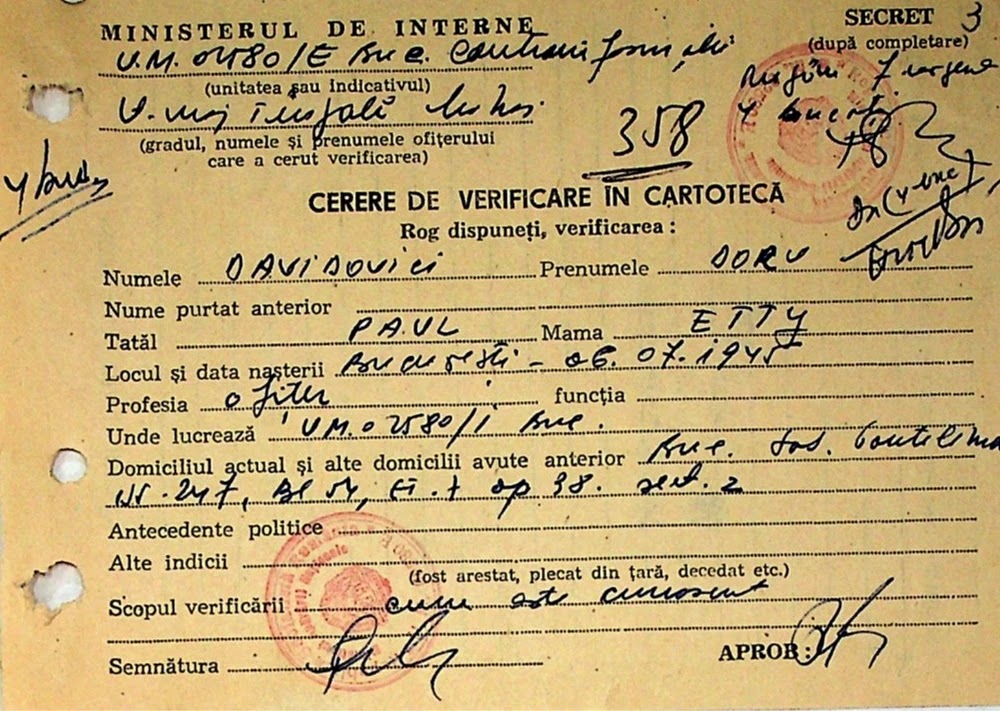 MINISTERUL DE INTERNE
SECRET 3
(după completare)
U.M. 02580/E Buc.
(unitatea sau indicativul)
(gradul, numele și prenumele ofițerului
care a cerut verificarea)
358
CERERE DE VERIFICARE IN CARTOTECĂ
Rog dispuneți, verificarea :
Numele DAVIDOVICI Prenumele DORU
Nume purtat anterior
Tatăl PAUL Mama ETTY
Locul și data nașterii București - 06.07.1945
Profesia ofițer funcția
Unde lucrează UM.02580/I Buc.
Domiciliul actual și alte domicilii avute anterior Buc. Șos.
247, Bl 54, Et. 7 ap 38. sect. 2
Antecedente politice
Alte indicii
(fost arestat, plecat din țară, decedat etc.)
Scopul verificării cum este cunoscut
Semnătura
APROB :